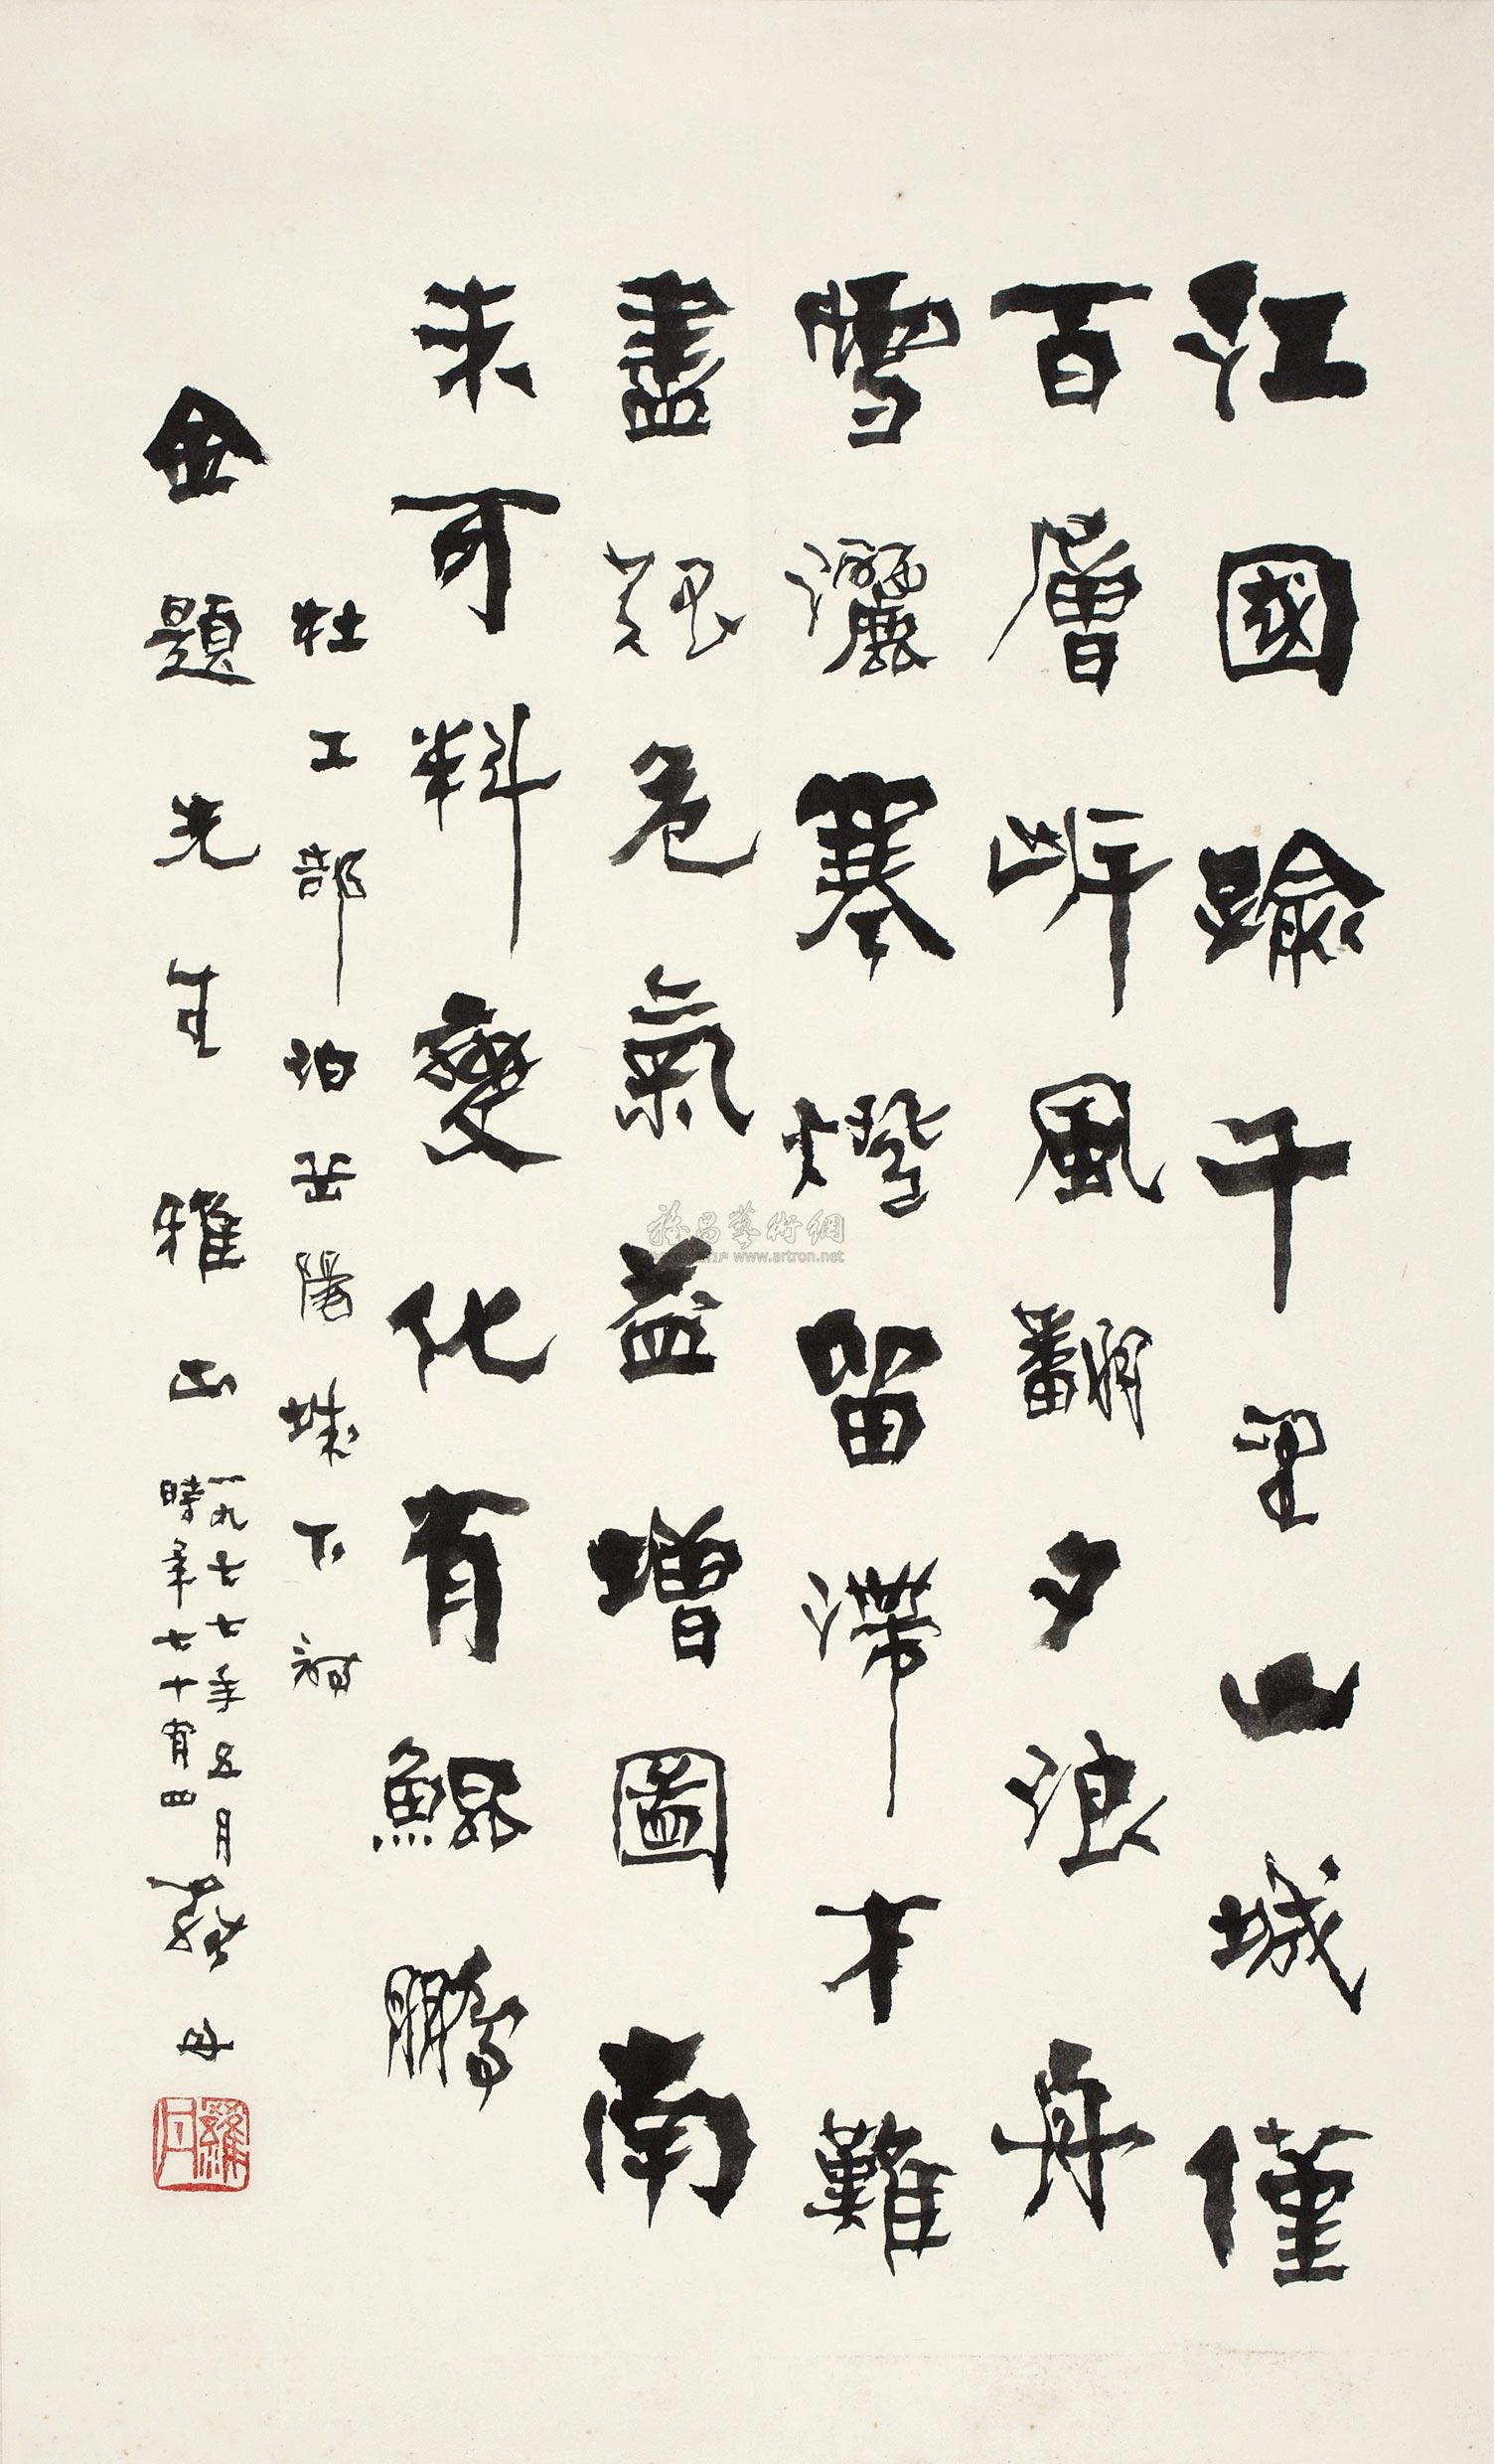 江國踰千里山城僅
百層岸風翻夕浪舟
雪灑寒燈留滯才難
盡艱危氣益增圖南
未可料變化有鯤鵬
杜工部泊岳陽城下詩
金題先生雅正
一九七七年五月
時年七十有四
羅丹
羅丹
雅昌藝術網
www.artron.net